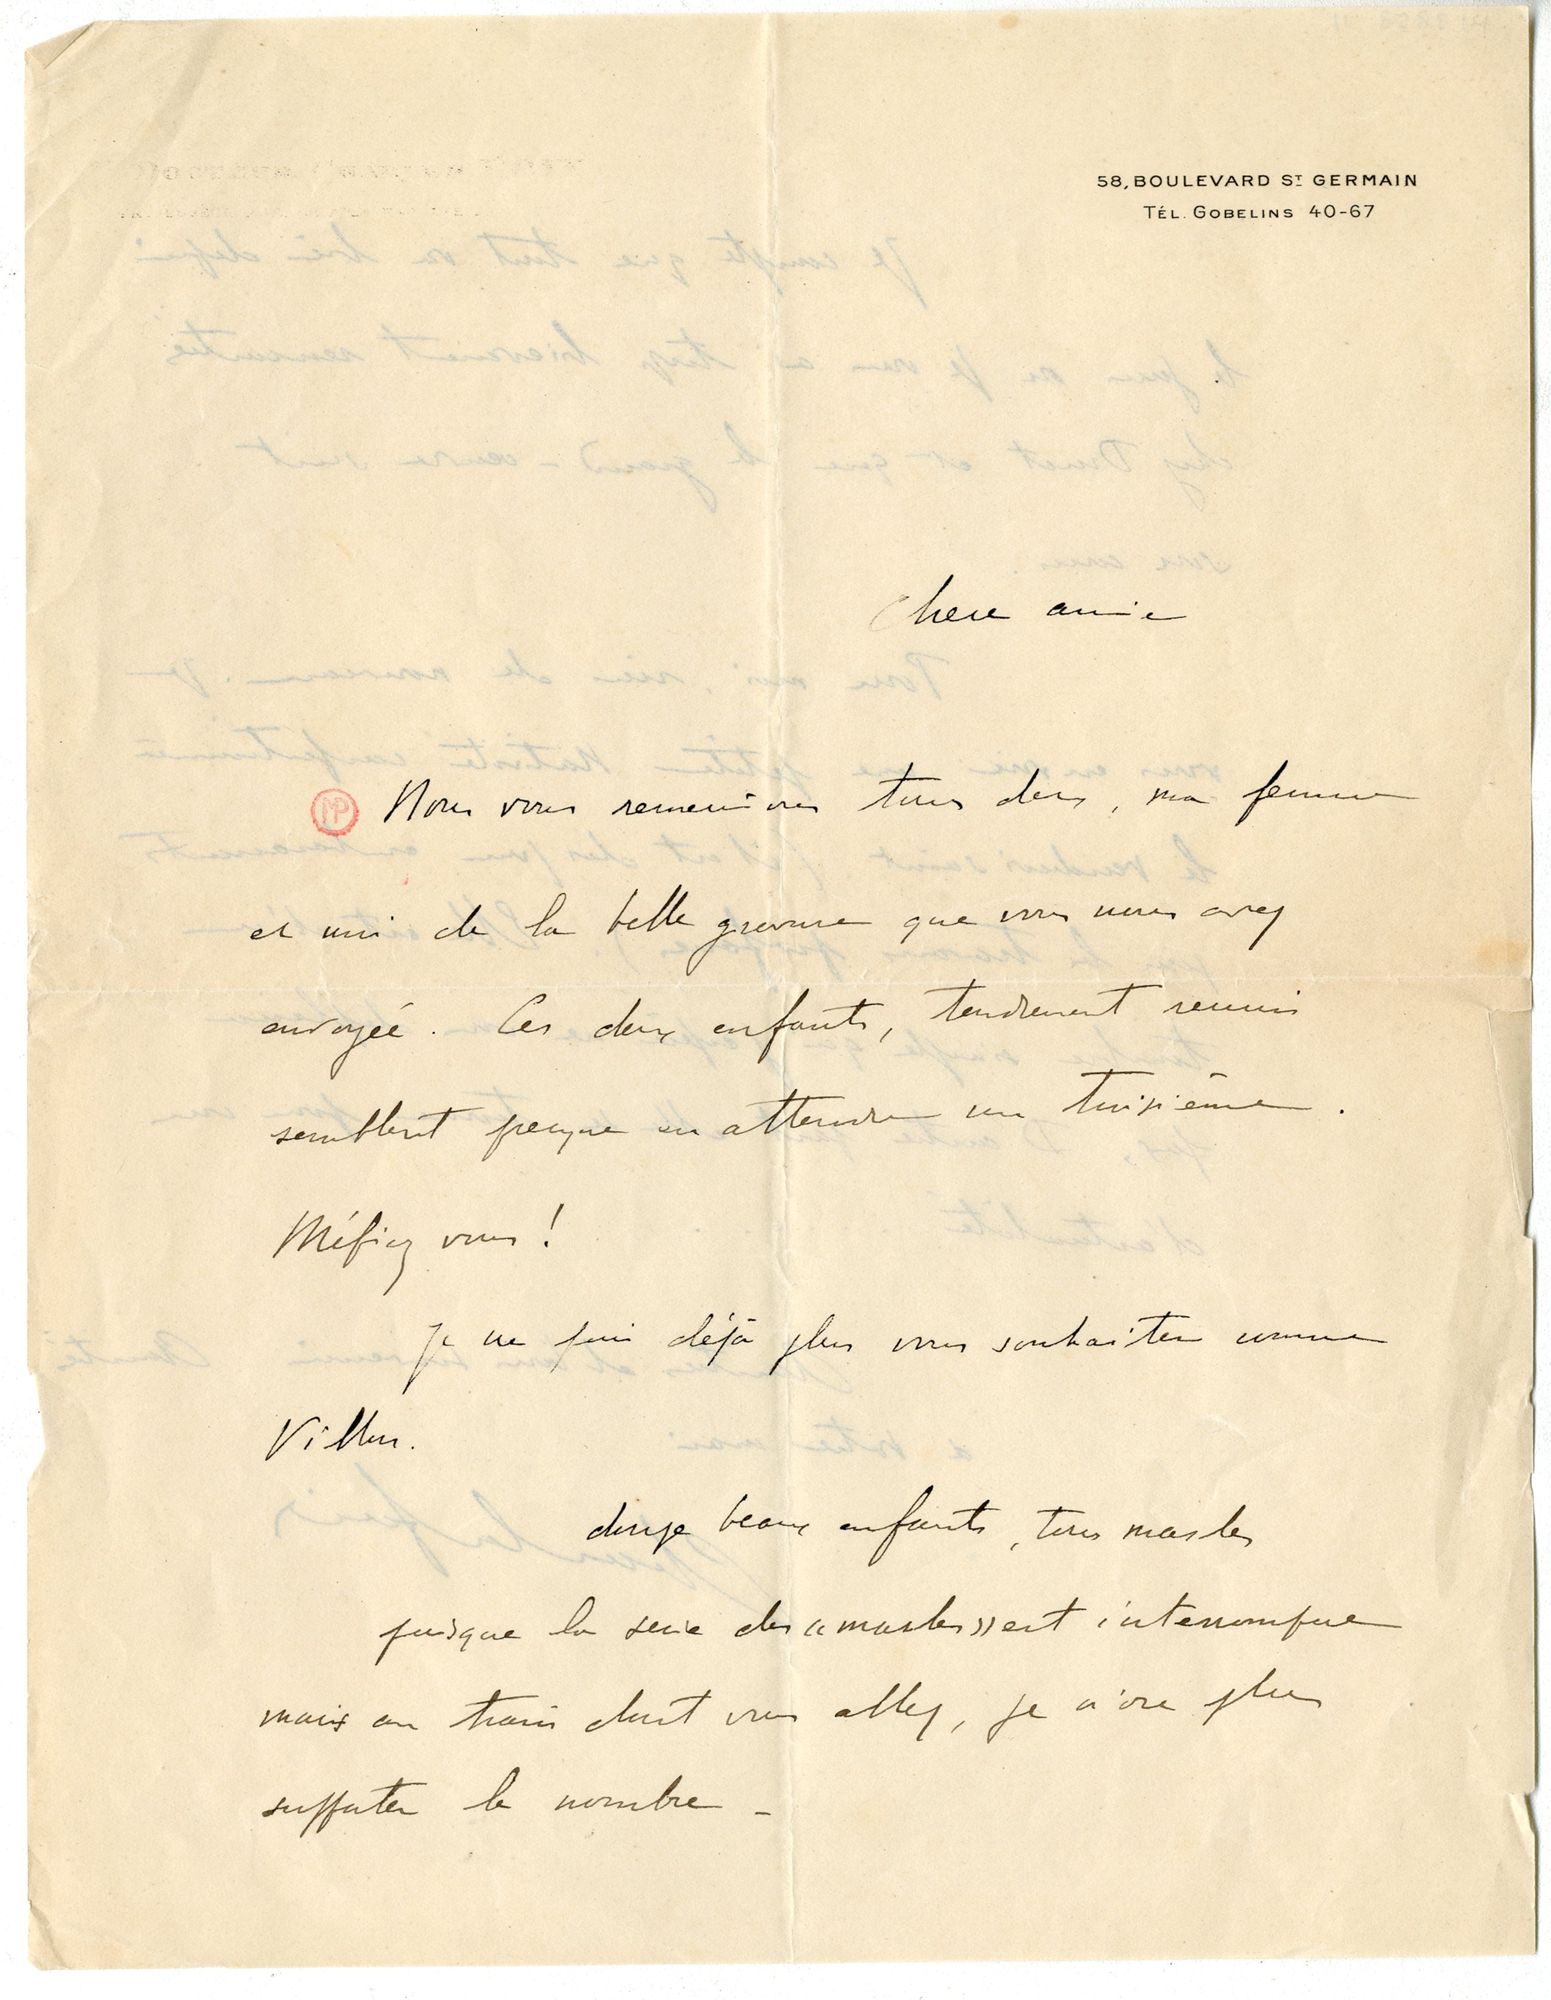 58, BOULEVARD ST GERMAIN
TÉL. GOBELINS 40-67
Chere amie
Nous vous remercions tous deux, ma femme
et moi de la belle gravure que vous nous avez
envoyée. Ces deux enfants, tendrement reunis
semblent presque en attendre un troisième.
Méfiez vous !
Je ne puis déjà plus vous souhaiter comme
Villon.
douze beaux enfants, tous masles
puisque la serie des «masles» est interrompue
mais au train dont vous allez, je n'ose plus
supputer le nombre -
MP